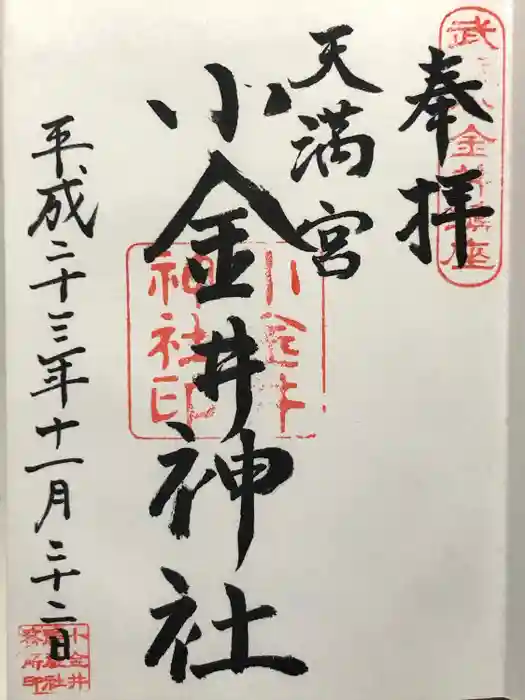 奉拝
天満宮
小金井神社
平成二十三年十一月二十二日
小金井
神社印
小金井
神社社
務所印